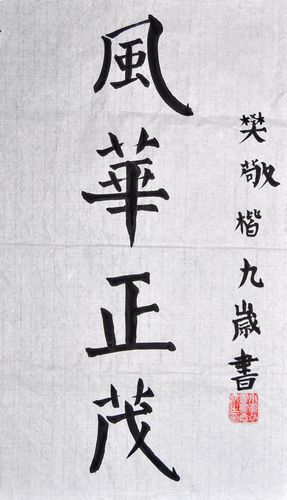 風華正茂
樊敬楷九歲書